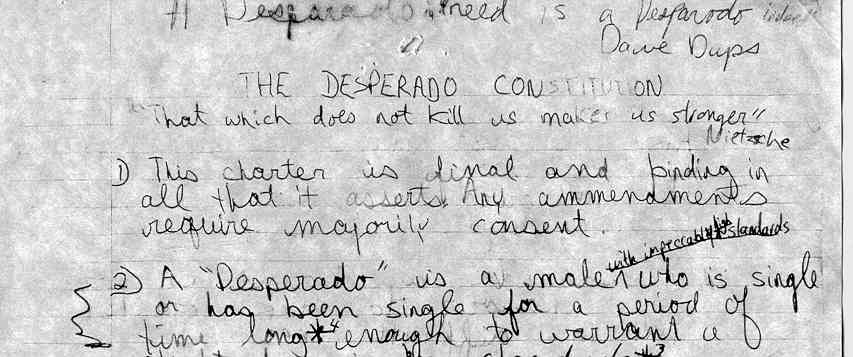 A Desparado .. need is a Desparodo indeed"
Dave Dups
THE DESPERADO CONSTITUTION
"That which does not kill us makes us stronger"
Nietzsche
1) This charter is final and binding in
all that it asserts. Any ammendments
require majority consent.
with impeccably high standards
2) A "Desperado" is a male who is single
or has been single for a period of
time long*4 enough to warrant a